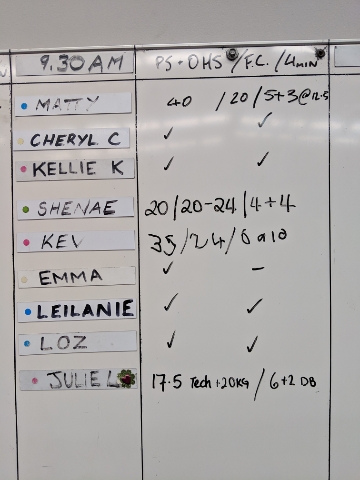 9.30AM PS + OHS / F.C. / 4MIN
MATTY 40 / 20 / 5+3@12.5
CHERYL C ✓ ✓
KELLIE K ✓ ✓
SHENAE 20 / 20-24 / 4+4
KEV 35 / 24 /
EMMA ✓ –
LEILANIE ✓ ✓
LOZ ✓ ✓
JULIE L 17.5 Tech +20KG / 6+2 DB